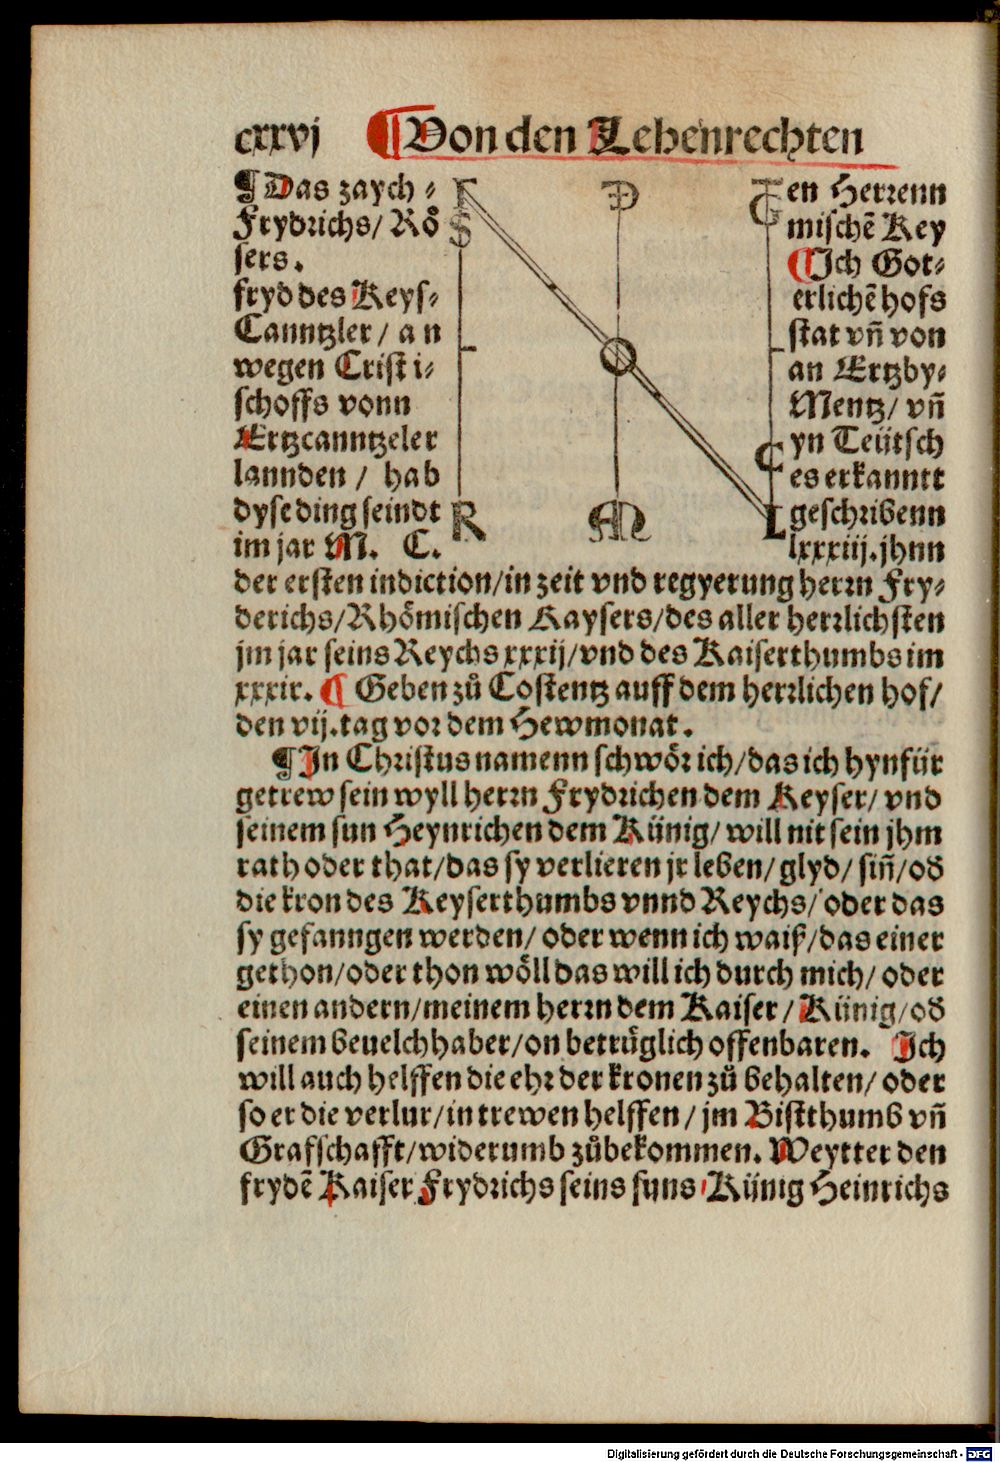 cxxvj ¶ Von den Lehenrechten
¶ Das zaych⸗ en Herꝛenn
Frydꝛichs/ Roͤ mischē Key
sers. ¶Ich Got⸗
fryd des Keys⸗ erlichē hofs
Canntzler/ an stat vñ von
wegen Cristi⸗ an Ertzby⸗
schoffs vonn Mentz/ vñ
Ertzcanntzeler yn Teütsch
lannden/ hab es erkanntt
dyse ding seindt geschꝛibenn
im jar M. C. lxxxiij. jhnn
F P T
S G
C
R M L
der ersten indiction/in zeit vnd regyerung herꝛn Fry⸗
derichs/Rhoͤmischen Kaysers/des aller herꝛlichsten
jm jar seins Reychs xxxij/vnd des Kaiserthumbs im
xxxix. ¶ Geben zů Costentz auff dem herꝛlichen hof/
den vij.tag voꝛ dem Hewmonat.
¶In Chꝛistus namenn schwoͤꝛ ich/das ich hynfür
getrew sein wyll herꝛn Frydꝛichen dem Keyser/ vnd
seinem sun Heynrichen dem Künig/ will nit sein jhm
rath oder that/das sy verlieren jr leben/ glyd/ siñ/od
die kron des Keyserthumbs vnnd Reychs/ oder das
sy gefanngen werden/ oder wenn ich waiß/das einer
gethon/oder thon woͤll das will ich durch mich/ oder
einen andern/meinem herꝛn dem Kaiser/ Künig/od
seinem beuelchhaber/on betrůglich offenbaren. Ich
will auch helffen die ehꝛ der kronen zů behalten/ oder
so er die verlur/in trewen helffen/ jm Bistthumb vñ
Grafschafft/widerumb zůbekommen. Weytter den
frydē Kaiser Frydꝛichs seins suns Künig Heinrichs
Digitalisierung gefördert durch die Deutsche Forschungsgemeinschaft - DFG